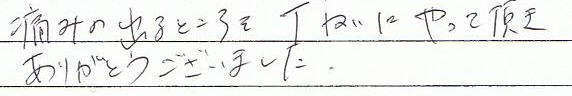 痛みの出るところを丁ねいにやって頂き
ありがとうございました.